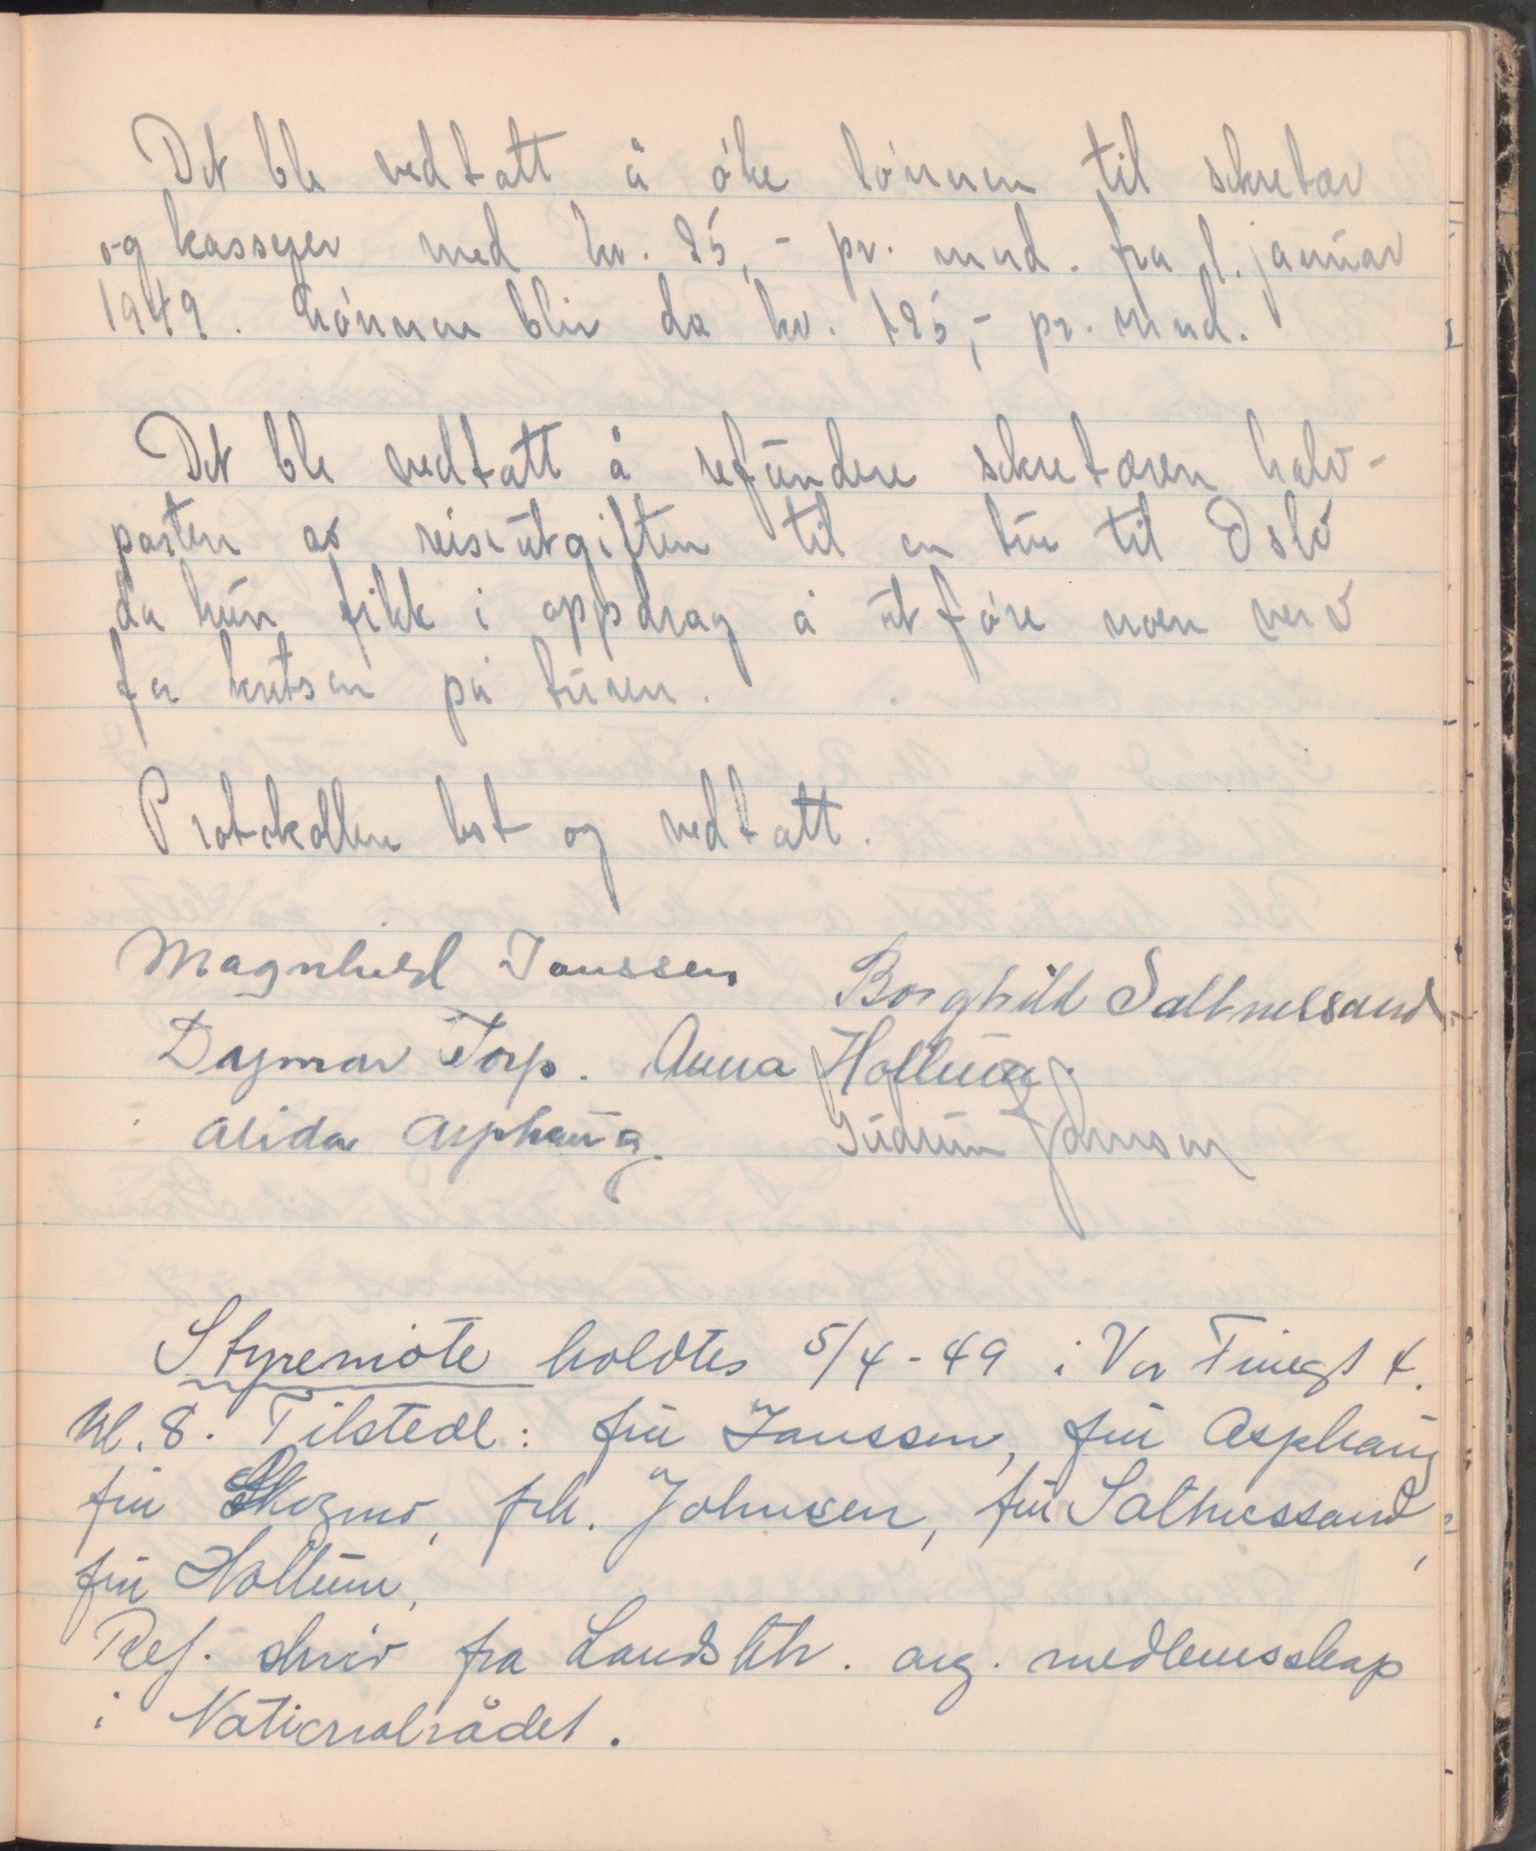 Det ble vedtatt å øke lønnen til sekretær
og kasserer med kr. 25,- pr. mnd. fra 1. januar
1949. Lønnen blir da kr. 125,- pr. mnd.
Det ble vedtatt å refundere sekretæren halv-
parten av reiseutgiften til en tur til Oslo
da hun fikk i oppdrag å utføre noen verv
for kretsen på turen.
Protokollen lest og vedtatt.
Magnhild Janssen Borghild Saltnessand
Dagmar Torp. Anna Holtum.
Alida Asphaug. Gudrun Johnsen
Styremöte holdtes 5/4-49 i Vor Fruegt 4.
kl. 8. Tilstede: fru Janssen, fru Asphaug
fru frk. Johnsen, fru Saltnessand,
fru Holtum.
Ref. skriv fra Landsktr. ang. medlemsskap
i Nationalrådet.